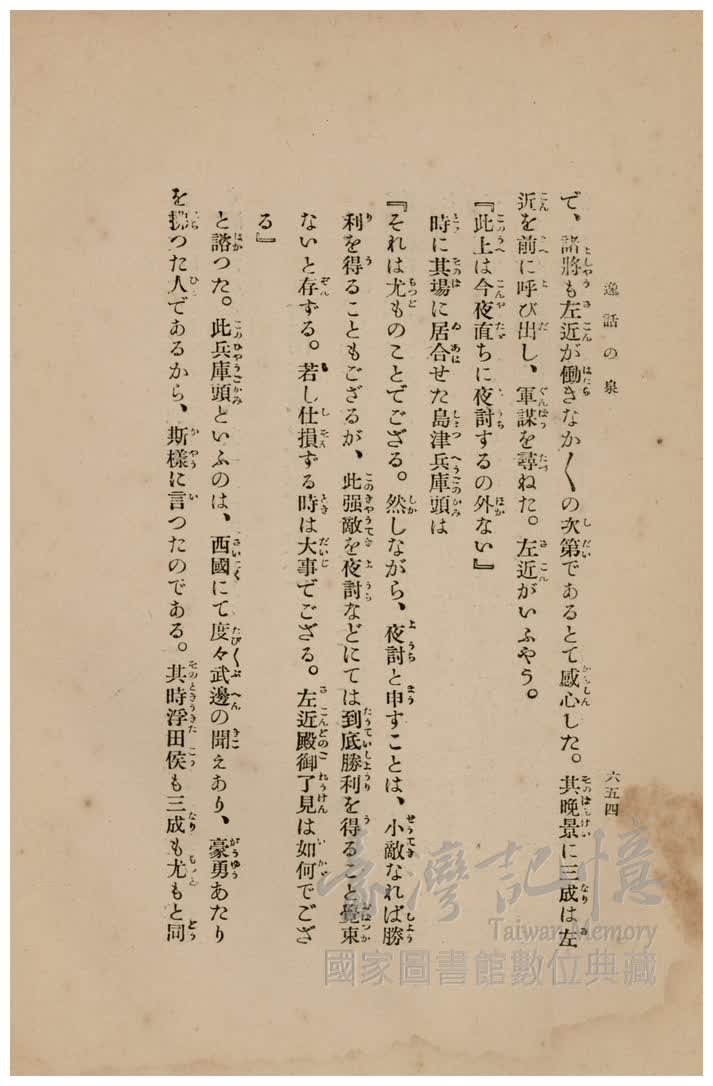 逸話の泉
六五四
で、諸將も左近が働きなか〱の次第であるとて感心した。其晩景に三成は左
近を前に呼び出し、軍謀を尋ねた。左近がいふやう。
『此上は今夜直ちに夜討するの外ない』
時に其場に居合せた島津兵庫頭は
『それは尤ものことでござる。然しながら、夜討と申すことは、小敵なれば勝
利を得ることもござるが、此强敵を夜討などにては到底勝利を得ること覺束
ないと存ずる。若し仕損ずる時は大事でござる。左近殿御了見は如何でござ
る』
と諮つた。此兵庫頭といふのは、西國にて度々武邊の聞えあり、豪勇あたり
を拂つた人であるから、斯樣に言つたのである。其時浮田侯も三成も尤もと同
臺灣記憶
Taiwan Memory
國家圖書館數位典藏